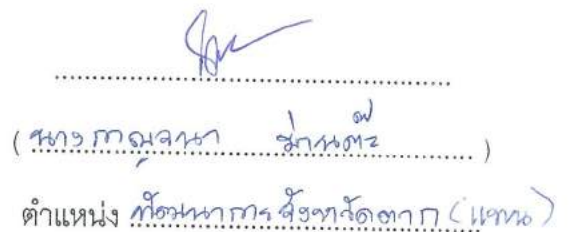 (นางกาญจนา ม่านต๊ะ)
ตำแหน่ง พัฒนาการจังหวัดตาก (แทน)